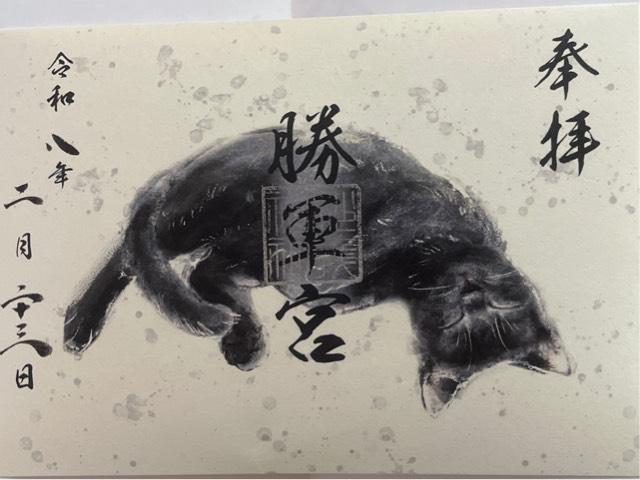 奉拝
勝軍宮
令和八年
二月二十三日